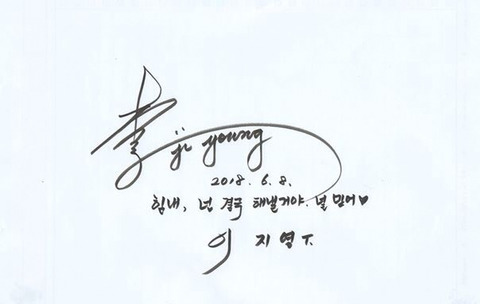 李 ji young
2018. 6. 8.
힘내, 넌 결국 해낼거야. 널 믿어♥
이지영 T.